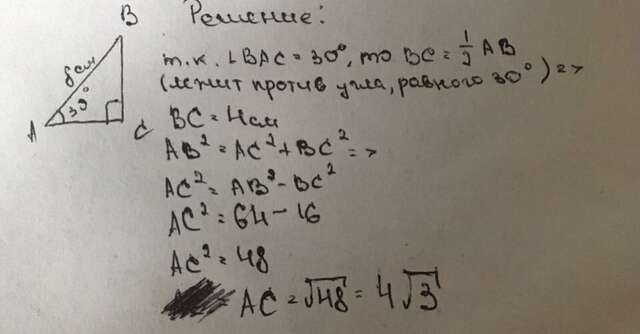 Решение:
B
8см
30°
A
C
т.к. ∠BAC = 30°, то BC = 1/2 AB
(лежит против угла, равного 30°) =>
BC = 4см
AB² = AC² + BC² =>
AC² = AB² - BC²
AC² = 64 - 16
AC² = 48
AC = √48 = 4√3